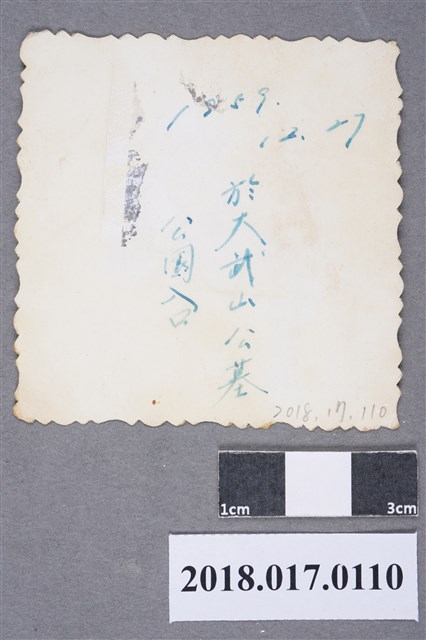 1959.
12.27
於大武山公墓
公園入口
2018.17.110
1cm
3cm
2018.017.0110